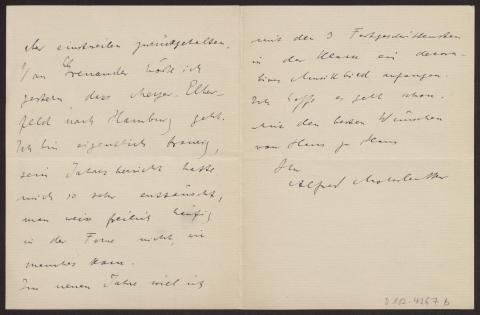 aber einstweilen zurückgehalten.
Von Grenander hörte ich
gestern, dass Meyer-Elber-
feld nach Hamburg geht.
Ich bin eigentlich traurig,
sein Jahresbericht hatte
mich so sehr enttäuscht,
man weiss freilich häufig
in der Ferne nicht, wie
manches kam.
Im neuen Jahre will ich
mit den 3 Fortgeschrittensten
in der Klasse ein
Musikbild anfangen.
Ich hoffe es geht schon.
Mit den besten Wünschen
von Haus zu Haus
Ihr
Alfred Mohrbutter